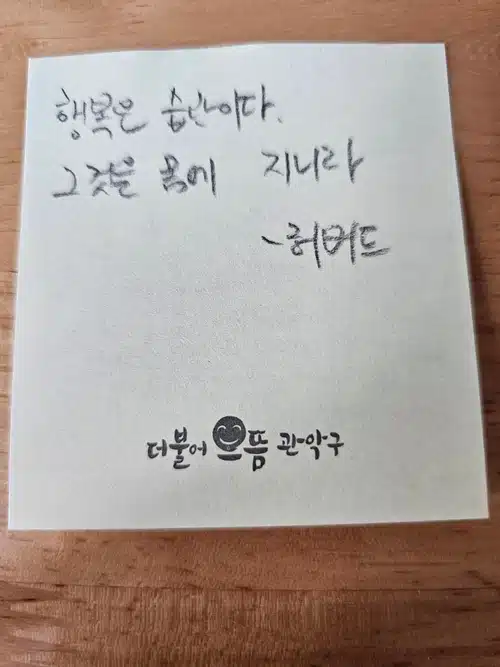 행복은 습관이다.
그것을 몸에 지니라
-허버드
더불어 으뜸 관악구